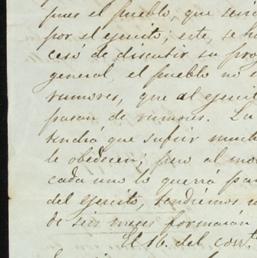 pues el pueblo, que
por el ejercito; este, se ha
cesó de discutir su pro
general, el pueblo no
rumores, que al ejercit
pasan de rumores. La
tendrá que sufrir much
le obedecen; pero al mo
cada uno lo querrá par
del ejercito, tendremos
de seis meses formarán
El 16. del corr.te